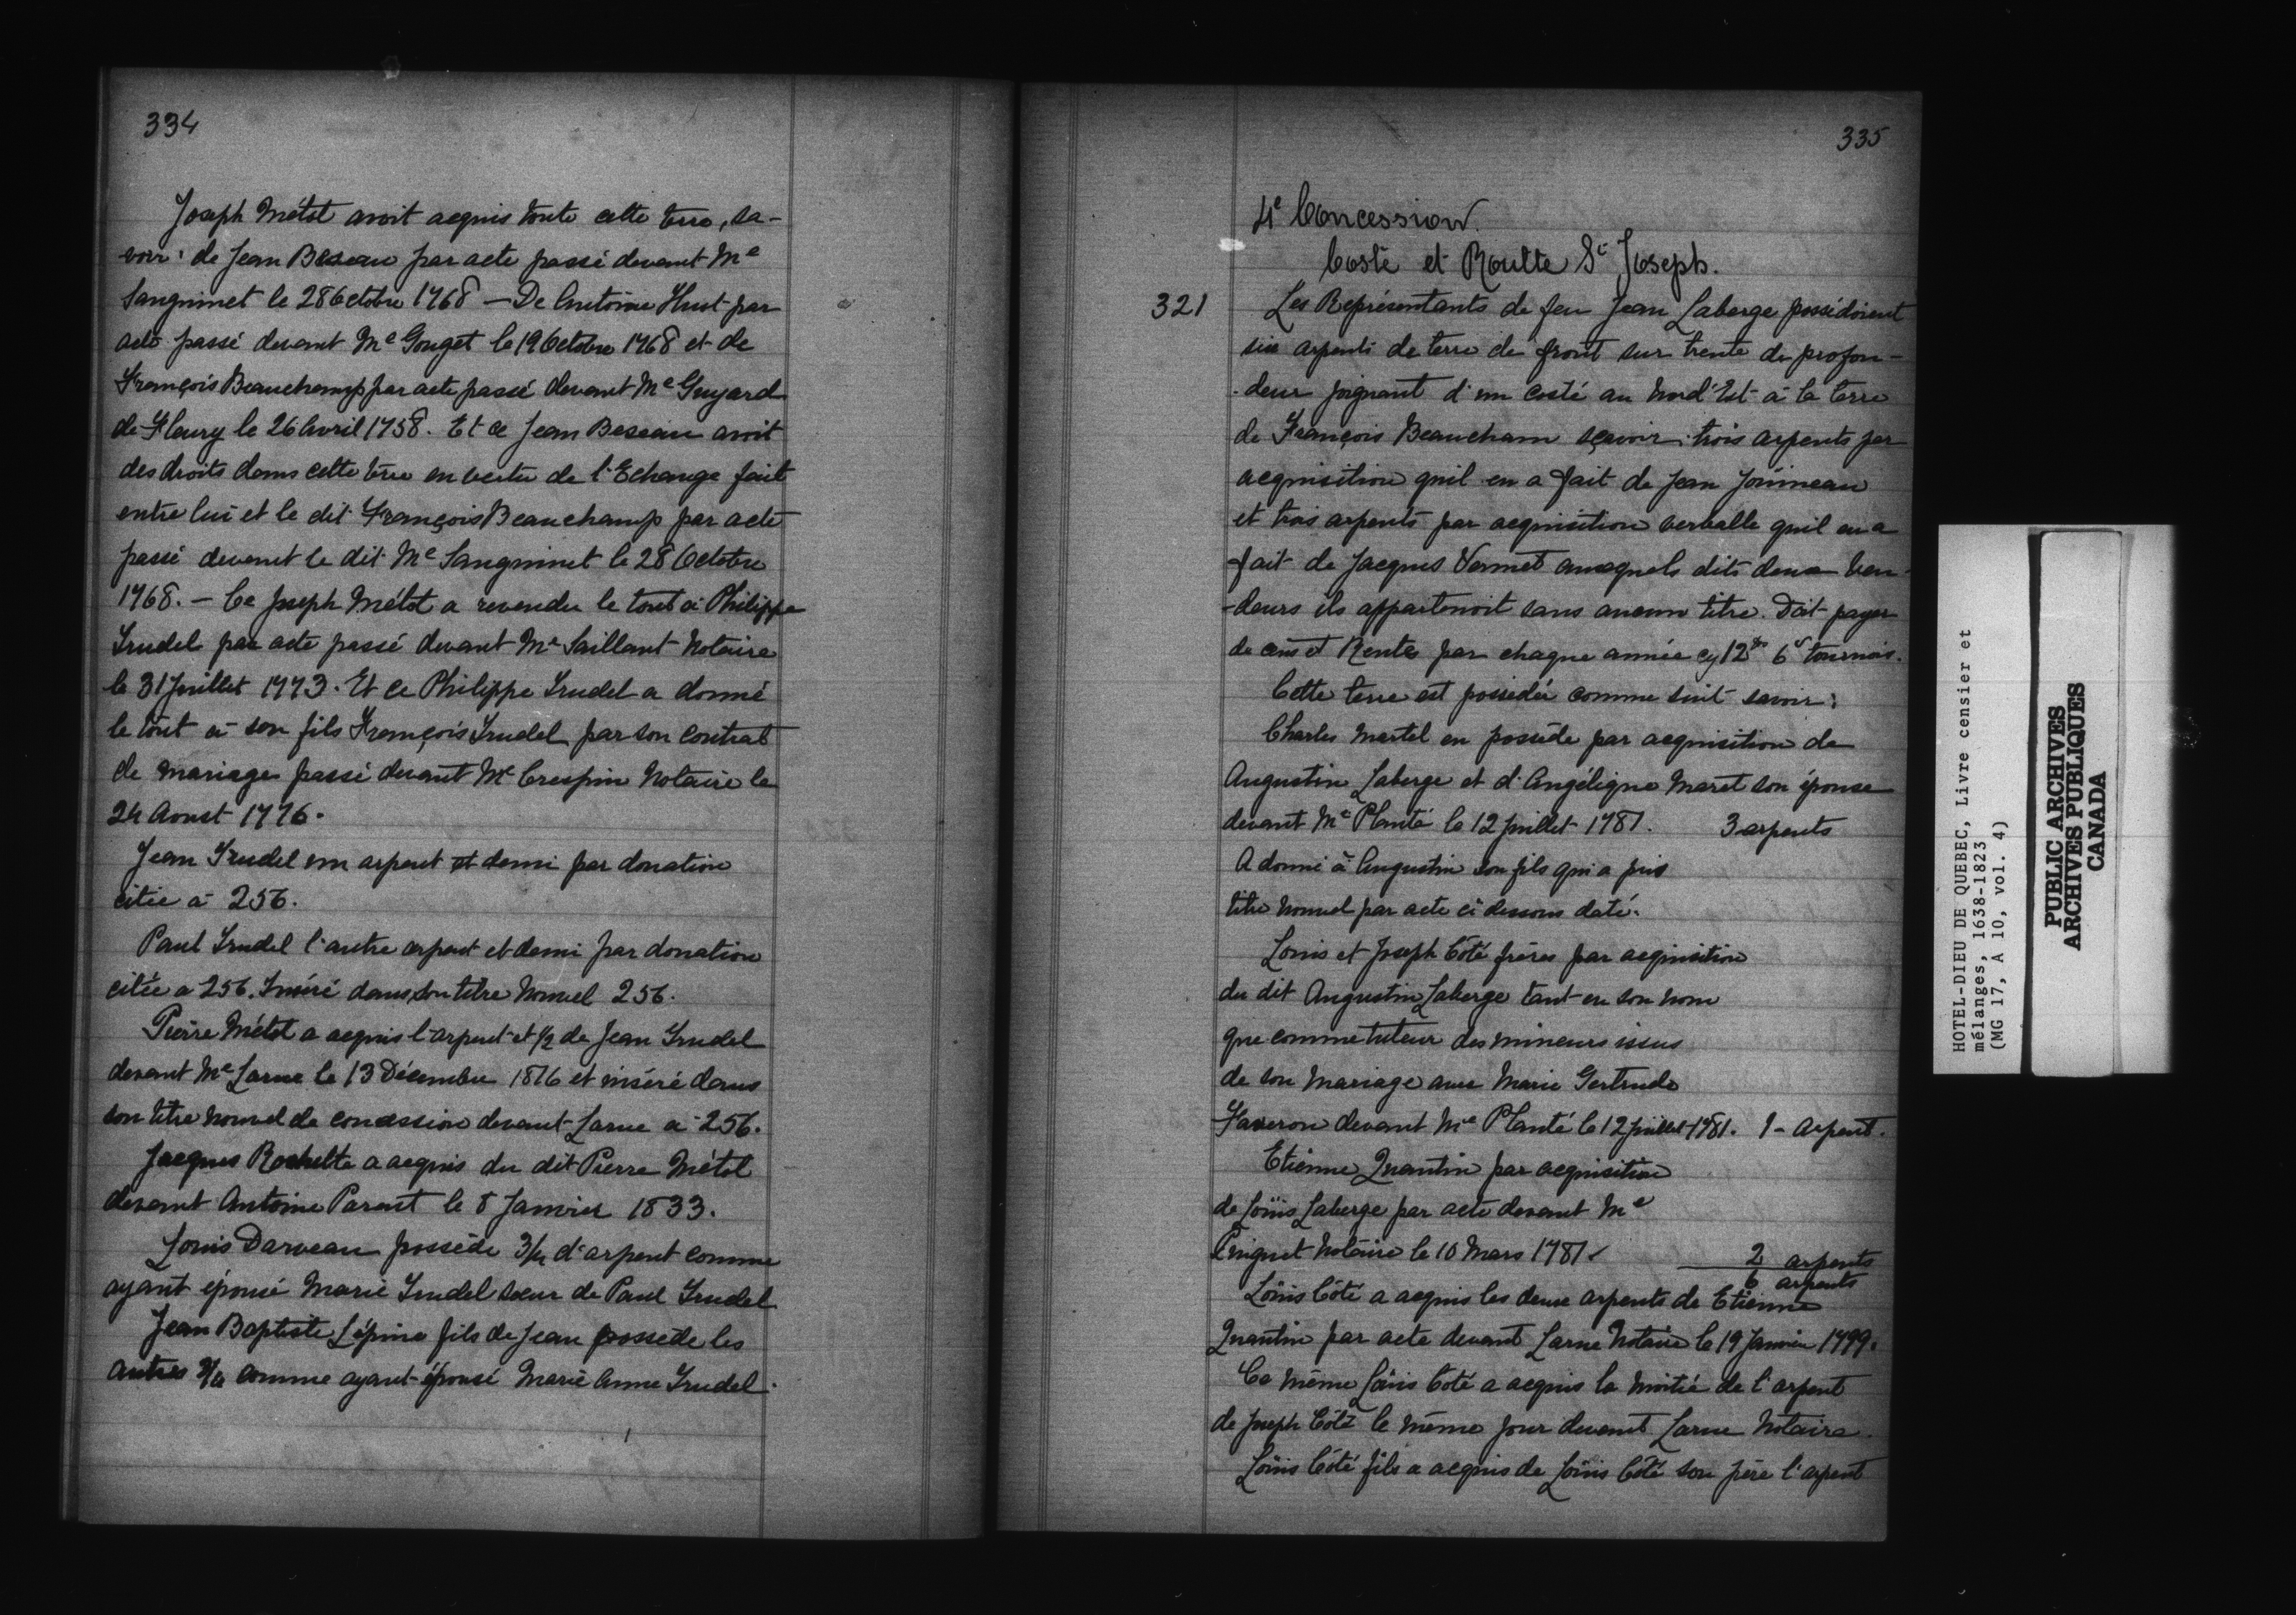 334
Joseph Métot avoit acquis toute cette terre, sa-
voir: de Jean Beseau par acte passé devant Me
Sanguinet le 28 Octobre 1768 — De Antoine Huot par
acte passé devant Me Gouget le 19 Octobre 1768 et de
François Beauchamp par acte passé devant Me Guyard
de Fleury le 26 Avril 1758. Et ce Jean Beseau avoit
des droits dans cette terre en vertu de l'Echange fait
entre lui et le dit François Beauchamp par acte
passé devant le dit Me Sanguinet le 28 Octobre
1768. — Ce Joseph Métot a revendu le tout à Philippe
Trudel par acte passé devant Me Saillant Notaire
le 31 Juillet 1773. Et ce Philippe Trudel a donné
le tout à son fils François Trudel par son contrat
de mariage passé devant Me Crespin Notaire le
24 Aoust 1776.
Jean Trudel un arpent et demi par donation
citée à 256.
Paul Trudel l'autre arpent et demi par donation
citée a 256. Inséré dans son titre Nouvel 256.
Pierre Métot a acquis l'arpent et 1/2 de Jean Trudel
devant Me Larue le 13 Décembre 1816 et inséré dans
son titre nouvel de concession devant Larue à 256.
Jacques Rochette a acquis du dit Pierre Métot
devant Antoine Parent le 8 Janvier 1833.
Louis Darveau possède 3/4 d'arpent comme
ayant épousé Marie Trudel soeur de Paul Trudel
Jean Baptiste Lépine fils de Jean possède les
autres 3/4 comme ayant épousé Marie Anne Trudel.
335
4e Concession.
Costé et Routte St Joseph.
321
Les Représentants de feu Jean Laberge possédoient
six arpents de terre de front sur trente de profon-
-deur joignant d'un costé au Nord'Est à la terre
de François Beaucham sçavoir: trois arpents par
acquisition qu'il en a fait de Jean Joüineau
et trois arpents par acquisition verballe quil en a
fait de Jacques Vermet auxquels dits deux Ven-
-deurs ils appartenoit sans aucun titre. Doit payer
de cens et Rentes par chaque année cy 12tt 6s tournois.
Cette terre est possédée comme suit savoir:
Charles Martel en possède par acquisition de
Augustin Laberge et d'Angélique Maret son épouse
devant Me Planté le 12 Juillet 1781. 3 arpents
A donné à Augustin son fils qui a pris
titre nouvel par acte ci dessous daté.
Louis et Joseph Côté frères par acquisition
du dit Augustin Laberge tant en son nom
que comme tuteur des mineurs issus
de son Mariage avec Marie Gertrude
Faveron devant Me Planté le 12 Juillet 1781. 1 - Arpent.
Etienne Quantin par acquisition
de Loüis Laberge par acte devant Me
Pinguet Notaire le 10 Mars 1781 2 arpents
6 arpents
Loüis Côté a acquis les deux arpents de Etienne
Quantin par acte devant Larue Notaire le 19 Janvier 1799.
Ce même Loüis Coté a acquis la moitié de l'arpent
de Joseph Côté le même jour devant Larue Notaire.
Loüis Côté fils a acquis de Loüis Côté son père l'arpent
HOTEL-DIEU DE QUEBEC, Livre censier et
mélanges, 1638-1823
(MG 17, A 10, vol. 4)
PUBLIC ARCHIVES
ARCHIVES PUBLIQUES
CANADA